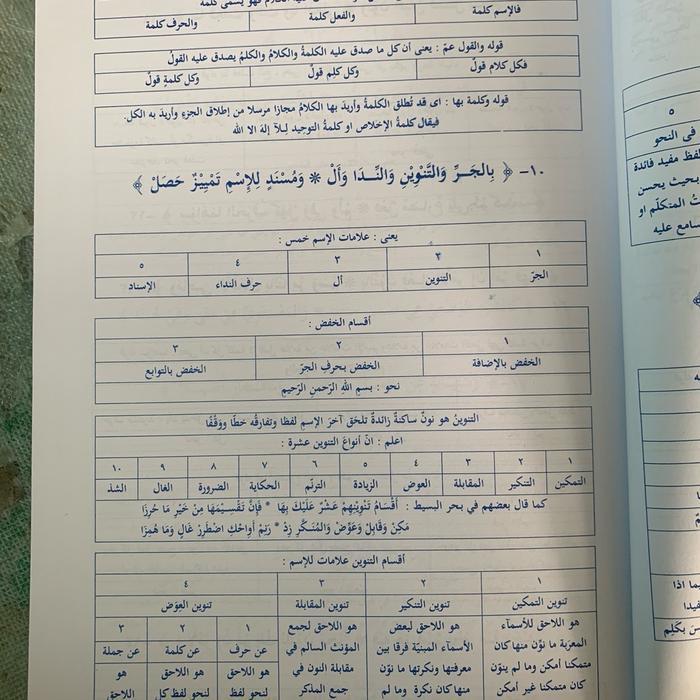 فالإسم كلمة والفعل كلمة والحرف كلمة
قوله والقول عمّ : يعنى أن كل ما صدق عليه الكلمةُ والكلامُ والكلمُ يصدق عليه القولُ
فكل كلام قولٌ وكل كلِم قولٌ وكل كلمةٍ قولٌ
قوله وكلمة بها : اى قد تُطلق الكلمةُ وأريدَ بها الكلامُ مجازا مرسلا من إطلاق الجزءِ وأريد به الكل.
فيقال كلمةُ الإخلاص او كلمةُ التوحيدِ لِـلآ إلهَ الا الله
١٠- ﴿ بِالجَــرِّ وَالتَّنْوِيْنِ وَالنِّــدَا وَأَلْ * وَمُسْنَدٍ لِلإِسْمِ تَمْيِيْزٌ حَصَلْ ﴾
يعنى : علامات الإسم خمس :
١ ٢ ٣ ٤ ٥
الجرّ التنوين أل حرف النداء الإسناد
أقسام الخفض :
١ ٢ ٣
الخفض بالإضافة الخفض بحرفِ الجرّ الخفض بالتوابع
نحو : بسمِ اللهِ الرّحمنِ الرّحيمِ
التنوينُ هو نونٌ ساكنةٌ زائدةٌ تلحق آخرَ الإسمِ لفظا وتفارقُه خطًّا ووَقْفًا
اعلم : انّ أنواعَ التنوين عشرة :
١ ٢ ٣ ٤ ٥ ٦ ٧ ٨ ٩ ١٠
التمكين التنكير المقابلة العوض الزيادة الترنّم الحكاية الضرورة الغال الشذ
كما قال بعضهم في بحر البسيط : أَقْسَامُ تَنْوِيْنِهِمْ عَشْرٌ عَلَيْكَ بِهَا * فَإِنَّ تَقْسِيْمَهَا مِنْ خَيْرِ مَا حُرِزَا
مَكِّنْ وَقَابِلْ وَعَوِّضْ وَالمُنَكَّرَ زِدْ * رَنِّمْ أَواحْكِ اضْطَرِرْ غَالٍ وَمَا هُمِزَا
أقسام التنوين علامات للإسم :
١ ٢ ٣ ٤
تنوين التمكين تنوين التنكير تنوين المقابلة تنوين العِوَض
هو اللاحق للأسماء هو اللاحق لبعض هو اللاحق لجمع ١ ٢ ٣
المعربة ما نوّن منها كان الأسماء المبنيّة فرقا بين المؤنث السالم في عن حرف عن كلمة عن جملة
متمكنا أمكن وما لم ينون معرفتها ونكرتها ما نوّن مقابلة النون في هو اللاحق هو اللاحق هو
كان متمكنا غير أمكن منها كان نكرة وما لم جمع المذكر لنحو لفظ لنحو لفظ كل اللاحق
٥
فى النحو
لفظ مفيد فائدة
بحيث يحسن
المتكلم او
سامع عليه